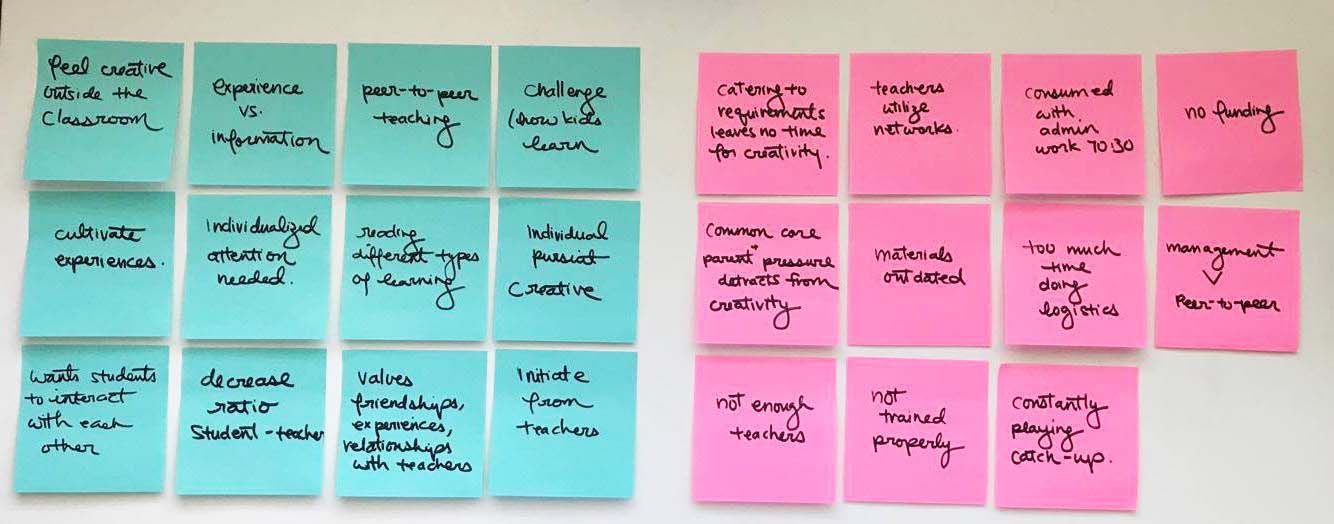 feel creative
outside the
classroom
experience
vs.
information
peer-to-peer
teaching
challenge
(how kids
learn
cultivate
experiences.
individualized
attention
needed.
reading
different types
of learning
Individual
pursuit
Creative
wants students
to interact
with each
other
decrease
ratio
Student-teacher
values
friendships,
experiences,
relationships
with teachers
Initiate
from
teachers
catering to
requirements
leaves no time
for creativity.
teachers
utilize
networks.
consumed
with
admin
work 70:30
no funding
Common core
+
parent pressure
detracts from
creativity
materials
outdated
too much
time
doing
logistics
management
↓
Peer-to-peer
not enough
teachers
not
trained
properly
constantly
playing
catch-up.